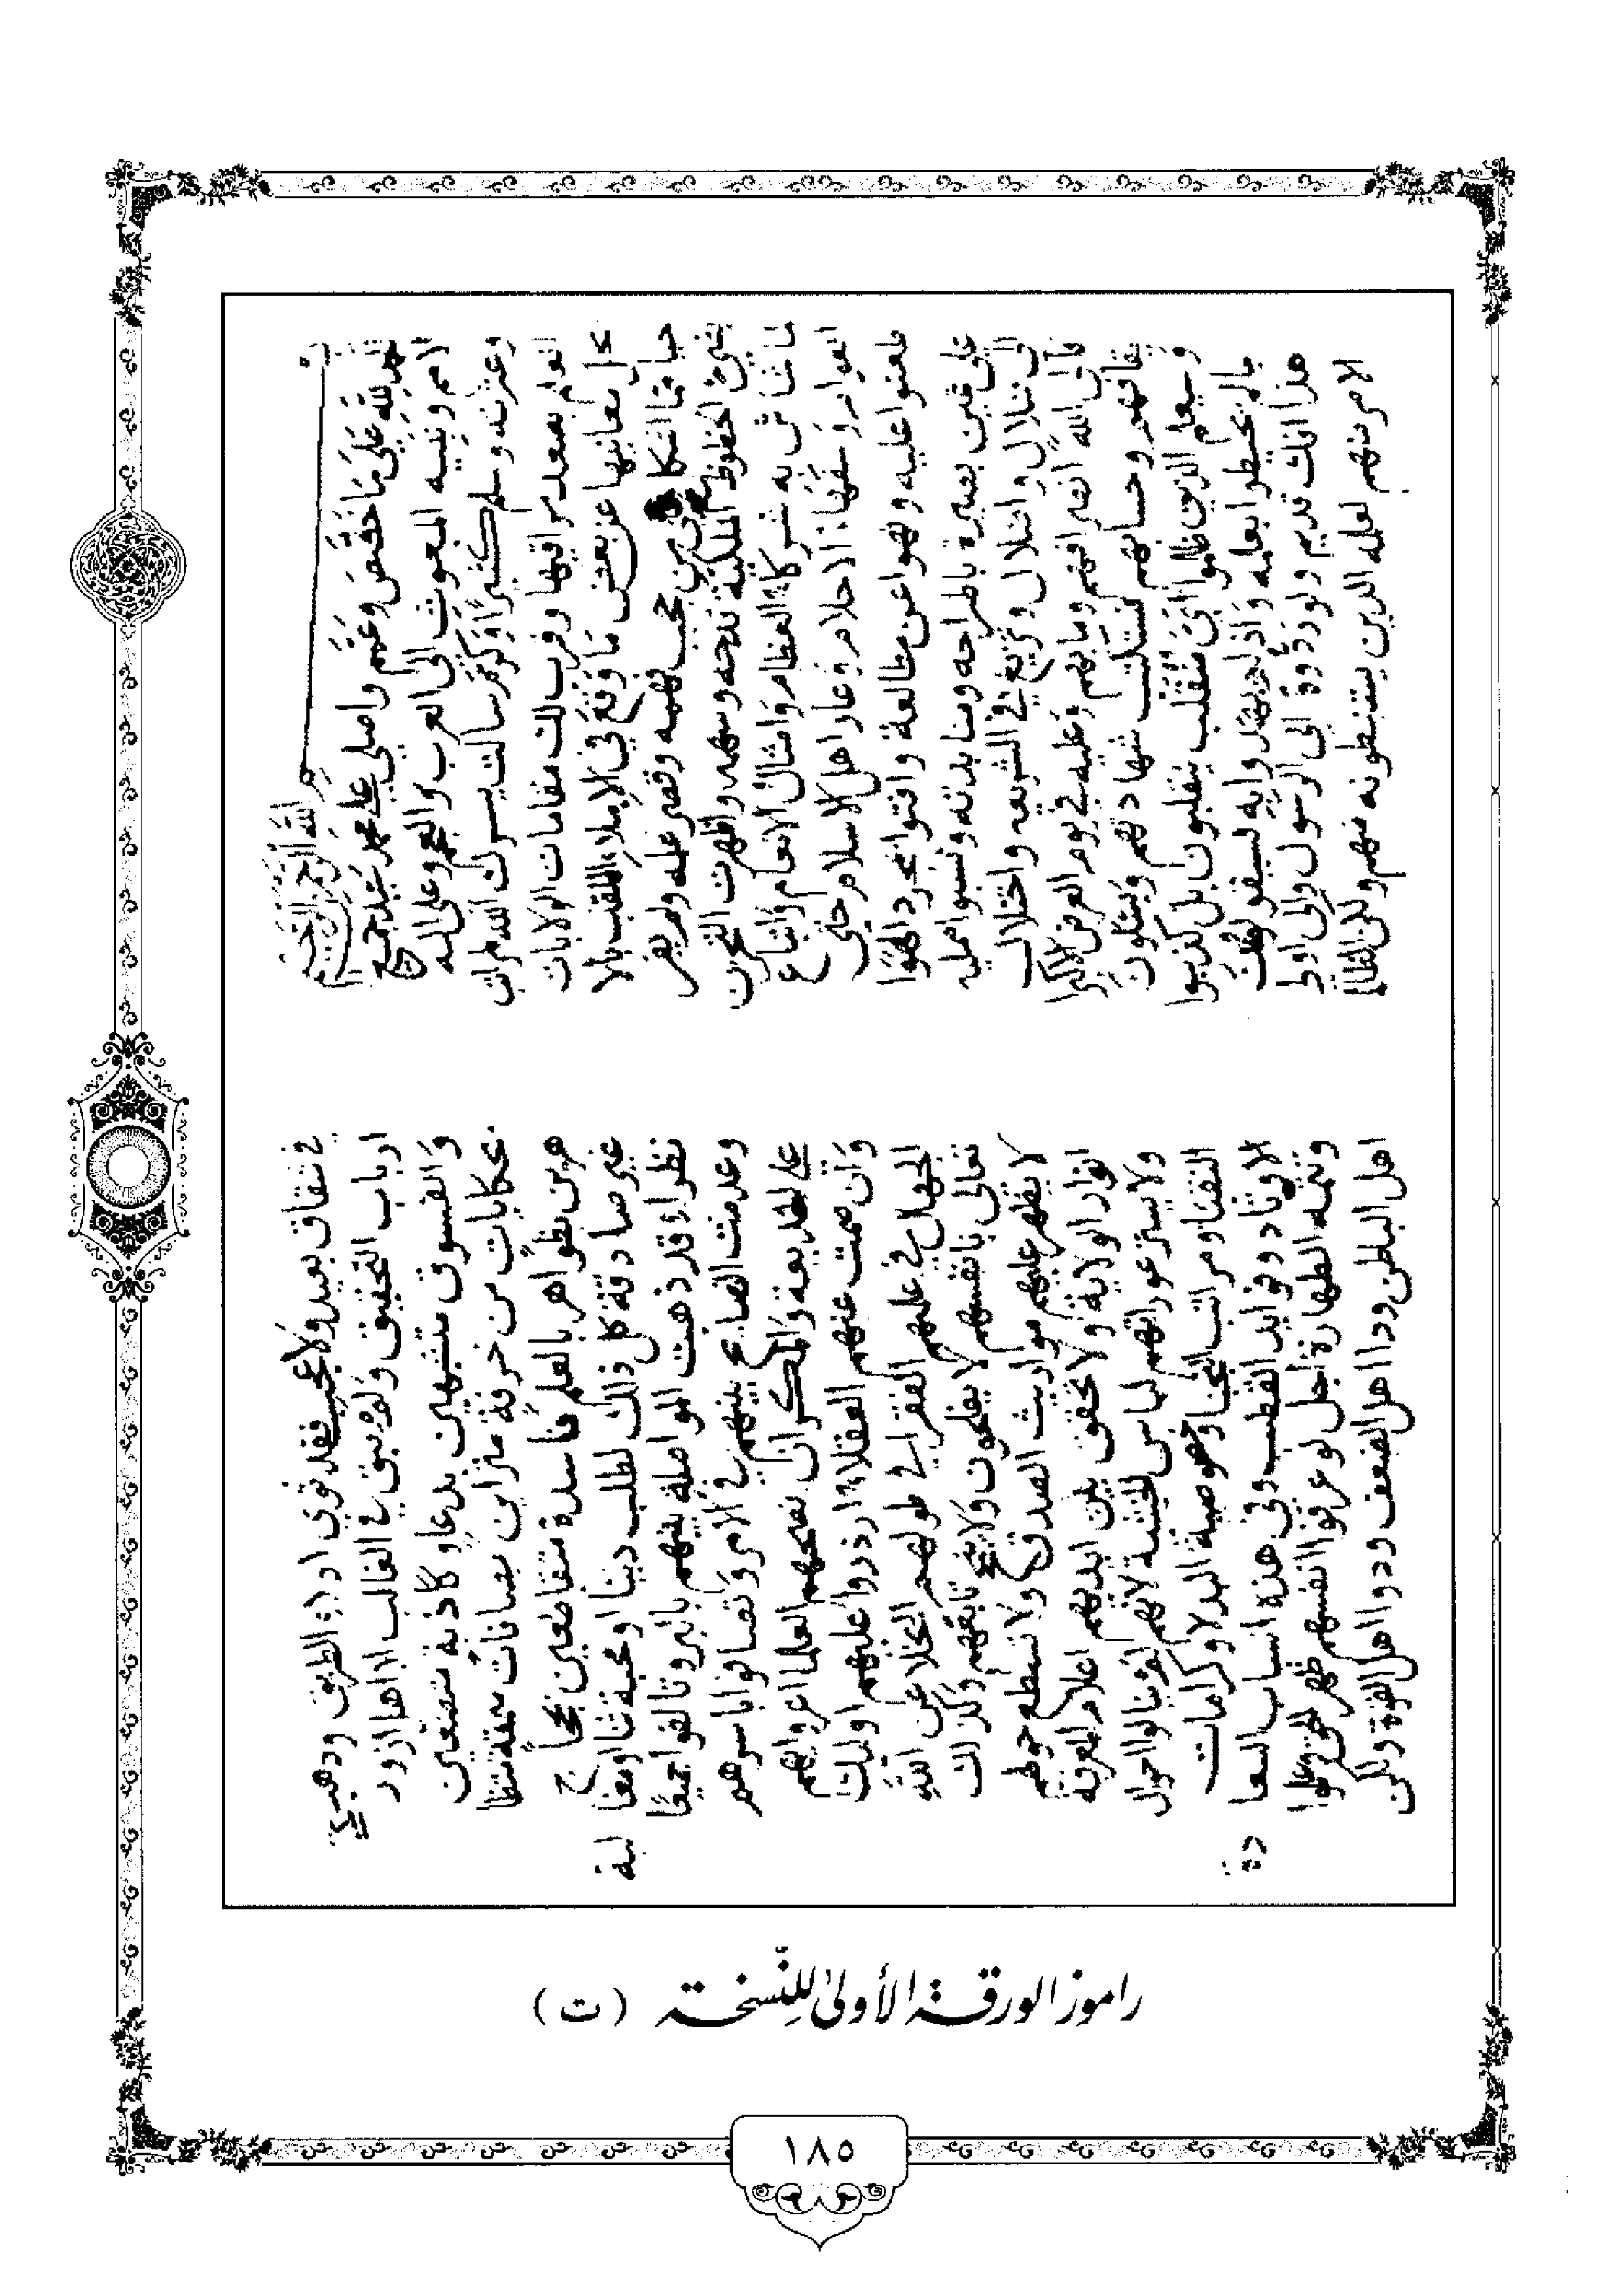 بسم الله الرحمن الرحيم
الحمد لله عَلَى مَا خَصَّصَ وَعَمَّم واصلي على محمد سَيِّد جميع
الامم ونبيه المبعوث الى العرب والعجم وعلى اله
وعترته وسلم كثيرًا وكرّم سالت يسرك الله لمراتب
العلم بصعد مراقيها وقرب لك مقامات الولايات
تحل معانيها عن بعض مَا وَقَع في الاملاء الملقب بالا
حيا مما اشكل من حجب فهمه وقصر علمه ولم يفز
بشيء الحظوظ الملكية قدحه وسهمه واظهرت التحزن
لما شاش به شركاء الطغام وامثال الانعام واتباع
العوام وسفهاء الاحلام وعار اهل الاسلام حتى
طعنوا عليه ونهوا عن مطالعته وافتوا بمجرد الهوا
على غير بصيرة باطراحه ومنابذته ونسبوا ممليه
الى ضلال واضلال وزيغ في الشريعه واختلال
فالى الله انصرافهم ومابهم وعليه في يوم العرض الاكبر
ايقافهم وحسابهم فستكتب شهادتهم ويسئلون
وسيعلم الذين ظلموا أيّ منقلب ينقلبون بل كذبوا
بما لم يحيطوا بعلمه واذ لم يهتدوا به فسيقولون
هذا افك قديم ولو ردوه الى الرسول والى اولي
الامر منهم لعلمه الذين يستنبطونه منهم ولكن الظالمين
في شقاق بعيد ولا عجب فقد ثوى ادلاء الطريق وذهب
ارباب التحقيق ولم يبق في الغالب الا اهل الزور
والفسوق متشبثين بدعاو كاذبة متصفين
بحكايات من خرفة متزاين بصفات منمقة متظا
هرين بظواهر بالعلم فاسدة متقاطعين بحجاج
غير صادقة كل ذلك لطلب دنيا او محبة ثنا او مغا
لبة
نظراء قد ذهبت المواصلة بينهم بالبر وتالفوا جميعًا
وعدمت النصايح بينهم في الامر وتصافوا باسرهم
على الخديعة والمكر ان نصحهم العلما اغروا بهم
وان صمت عنهم العقلاء ازدروا عليهم اوليك
الجهال في علمهم الفقراء في طولهم البخلا عن الله
تعالى بانفسهم لا يفلحون ولا ينجح تابعهم وكذلك
لا يظهر عليهم مواريث الصدق ولا تسطع حولهم
انوار الولاية ولا تخفق بين ايديهم اعلام المعرفة
ولا يستر عوراتهم لباس الخشية لانهم لم ينالوا احوال
النقبا ومراتب النجبا وخصوصية البدلا وكرامات
الاوتاد وفوايد القطب وفي هذه اسباب السعا
دة
وتتمه الطهارة اجل لو عرفوا انفسهم ظهر لهم الحق وعلموا
اهل الباطن ودا اهل الضعف ودوا اهل القوة ولكن
راموز الورقة الأولى للنسخة (ت)
١٨٥